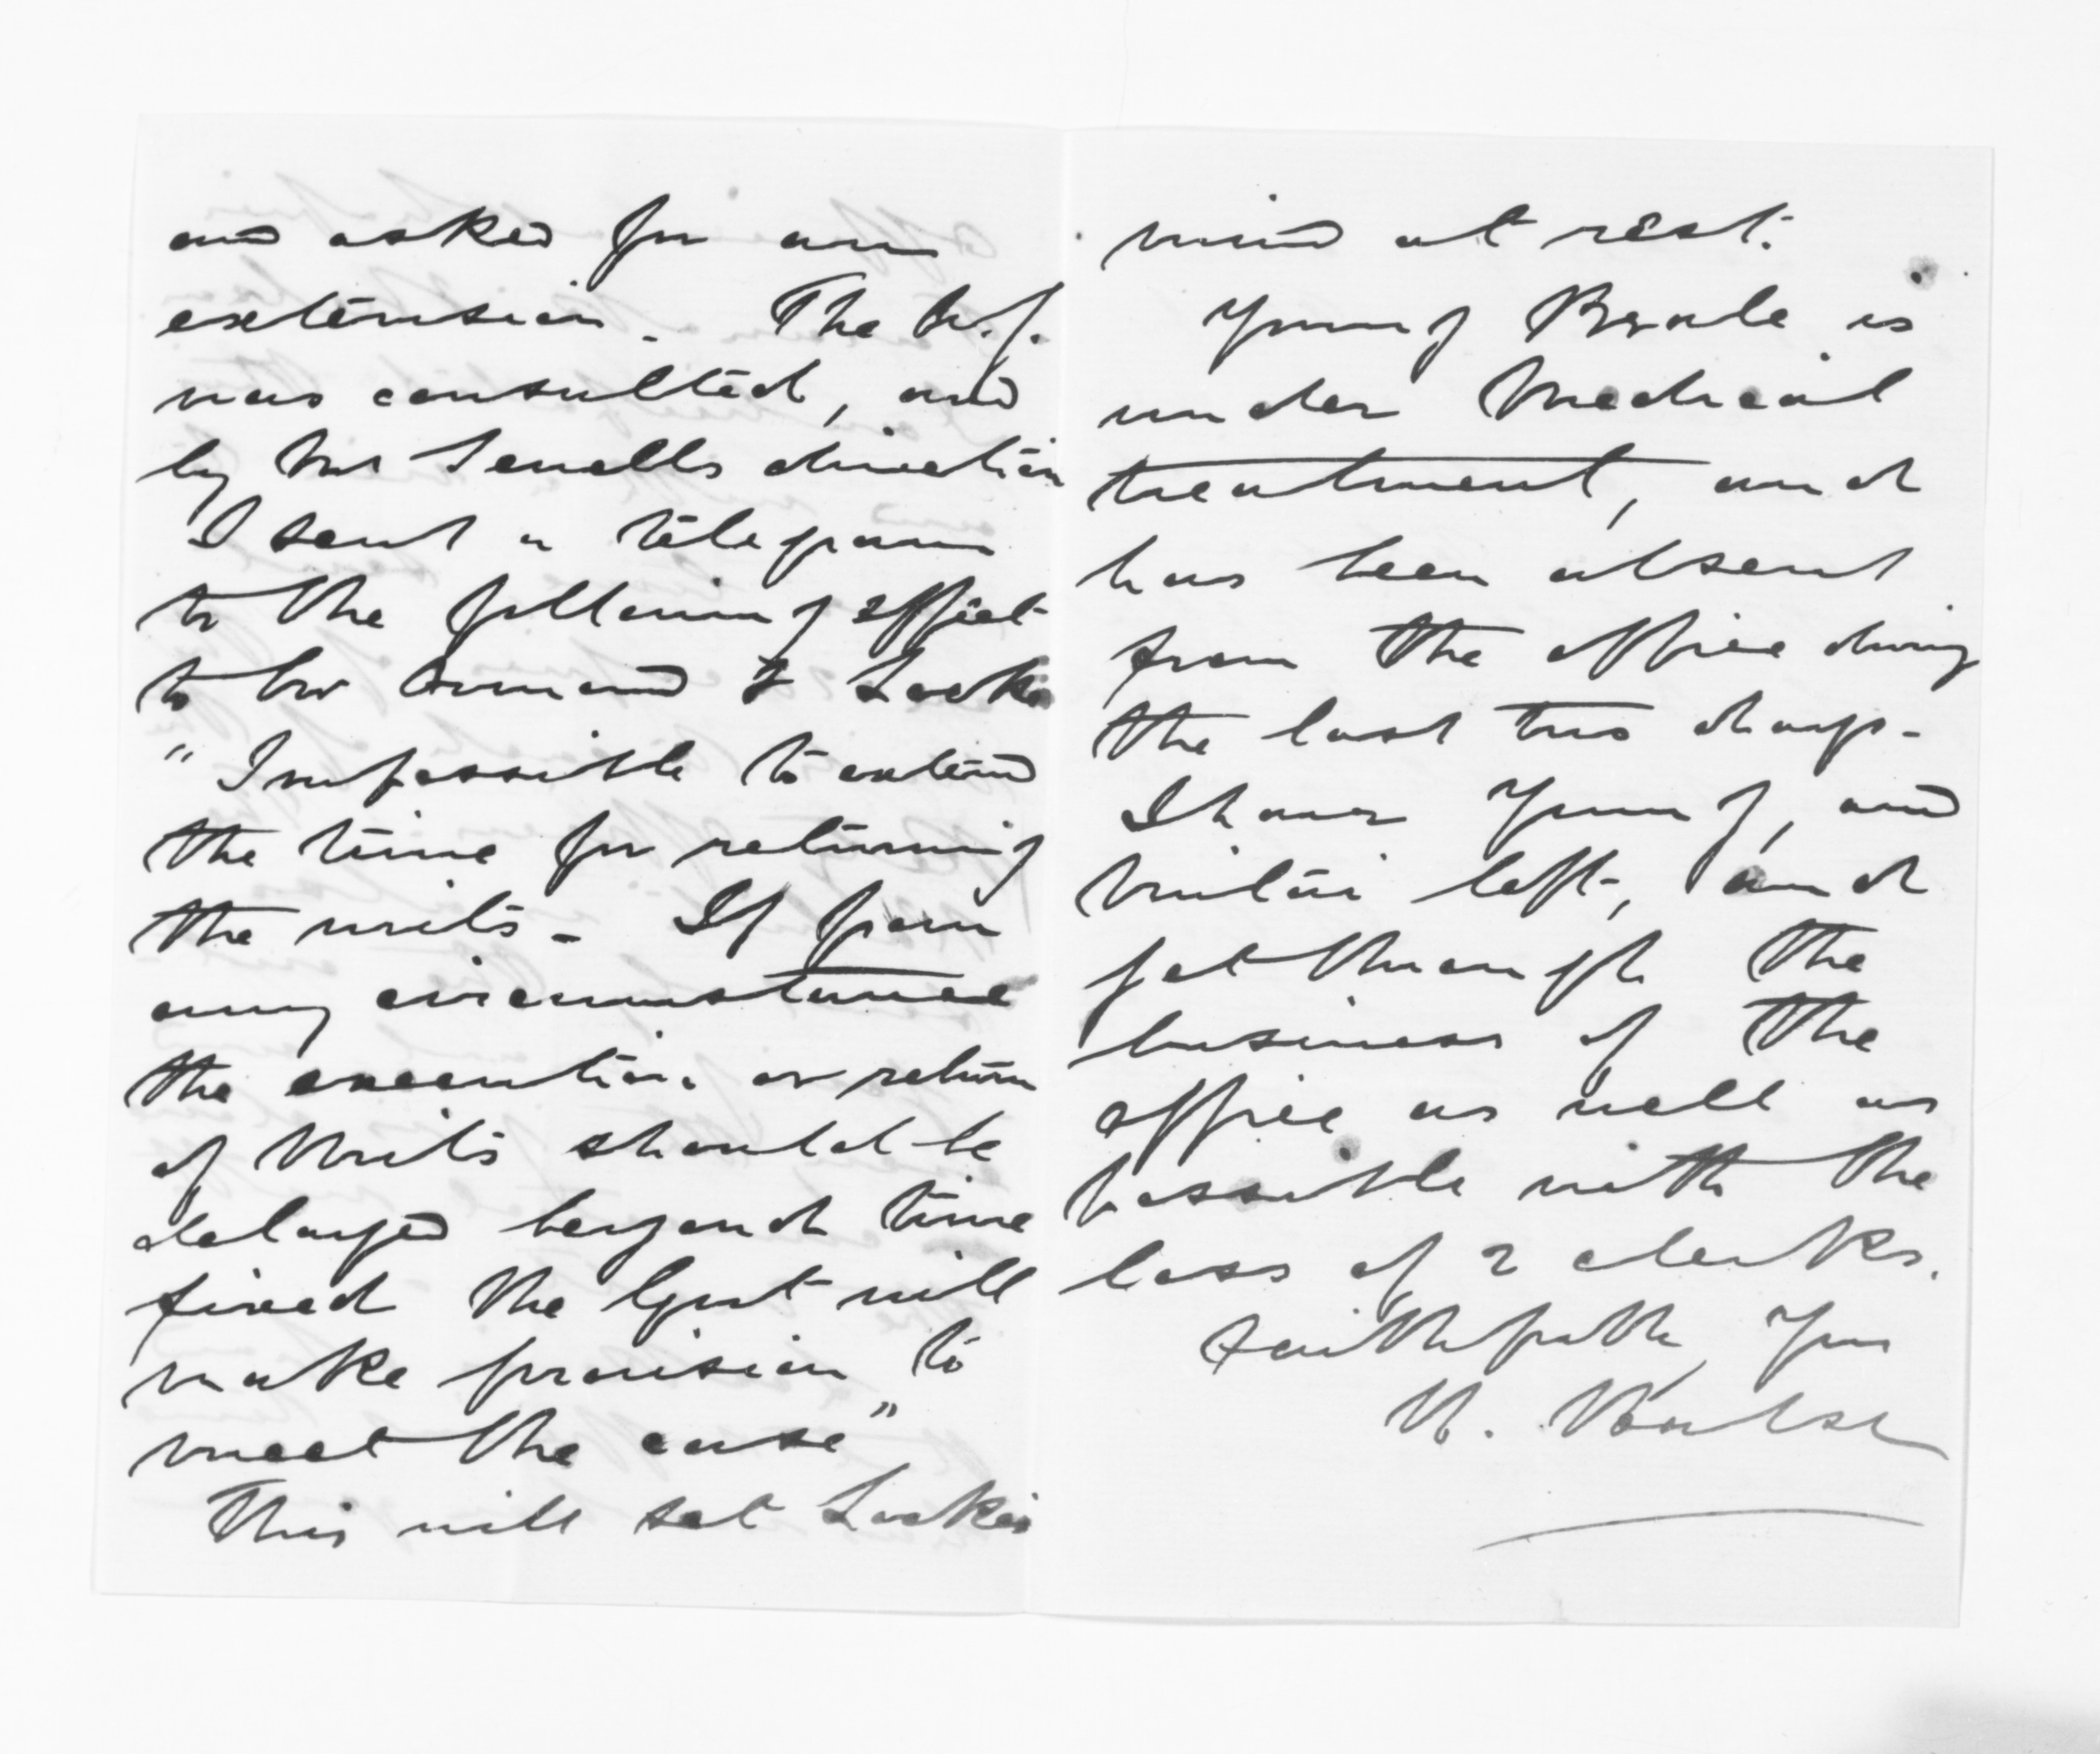 and asked for an
extension. The A.G.
was consulted, and
by Mr Sewells direction
I sent a telegram
to the following effect
to Mr Ormond & Locke
"Impossible to extend
the time for returning
the writs - If from
any circumstance
the execution or return
of Writs should be
delayed beyond time
fixed the Govt will
make provision to
meet the case"
This will set Locke's
mind at rest.
Young is
under Medical
treatment, and
has been absent
from the office during
the last two days -
I have Young, and
left, and
get through the
business of the
office as well as
possible with the
loss of 2 clerks.
Faithfully Yrs